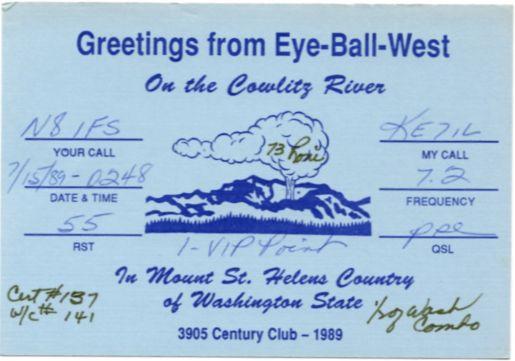 Greetings from Eye-Ball-West
On the Cowlitz River
N8IFS
YOUR CALL
7/15/89 - 0248
DATE & TIME
55
RST
73
KE7IL
MY CALL
7.2
FREQUENCY
QSL
1-VIP Point
In Mount St. Helens Country
of Washington State
Cert # 137
w/c# 141
Wash
Combo
3905 Century Club – 1989